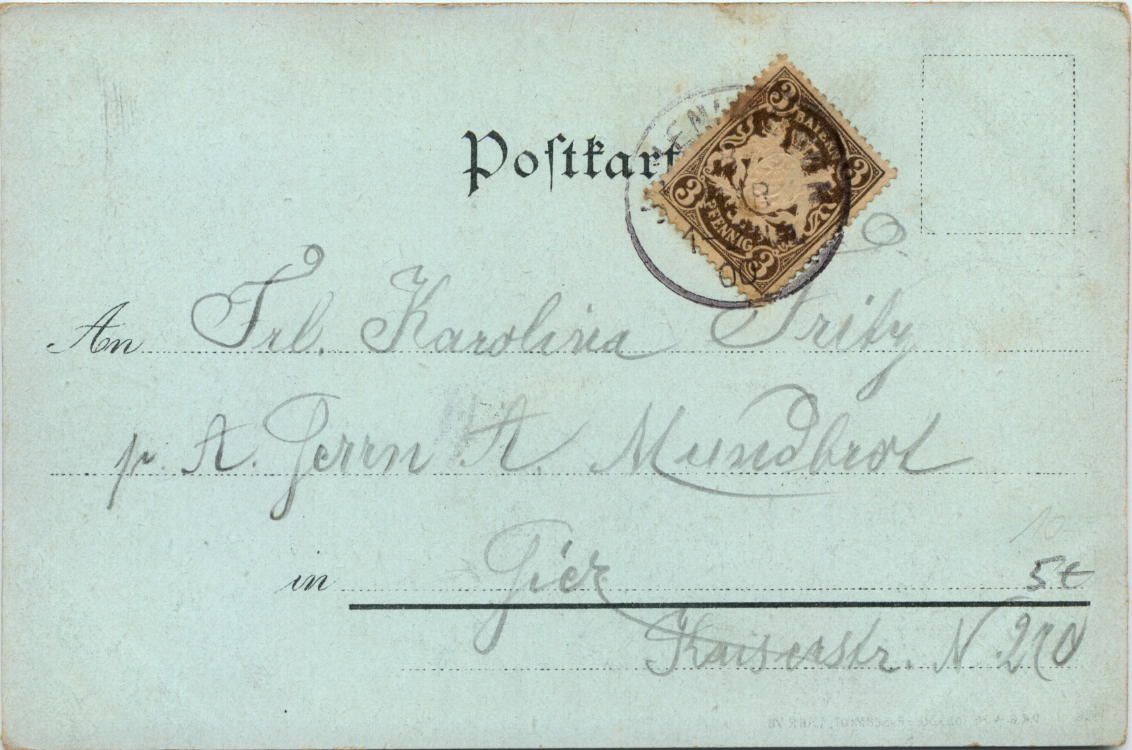 Postkart
3 BAYERN 3
3 PFENNIG 3
8
00
An Frl. Karolina Fritz
p. A. Herrn A. Mundbrot
in Hier
5€
Kaiserstr. N. 210